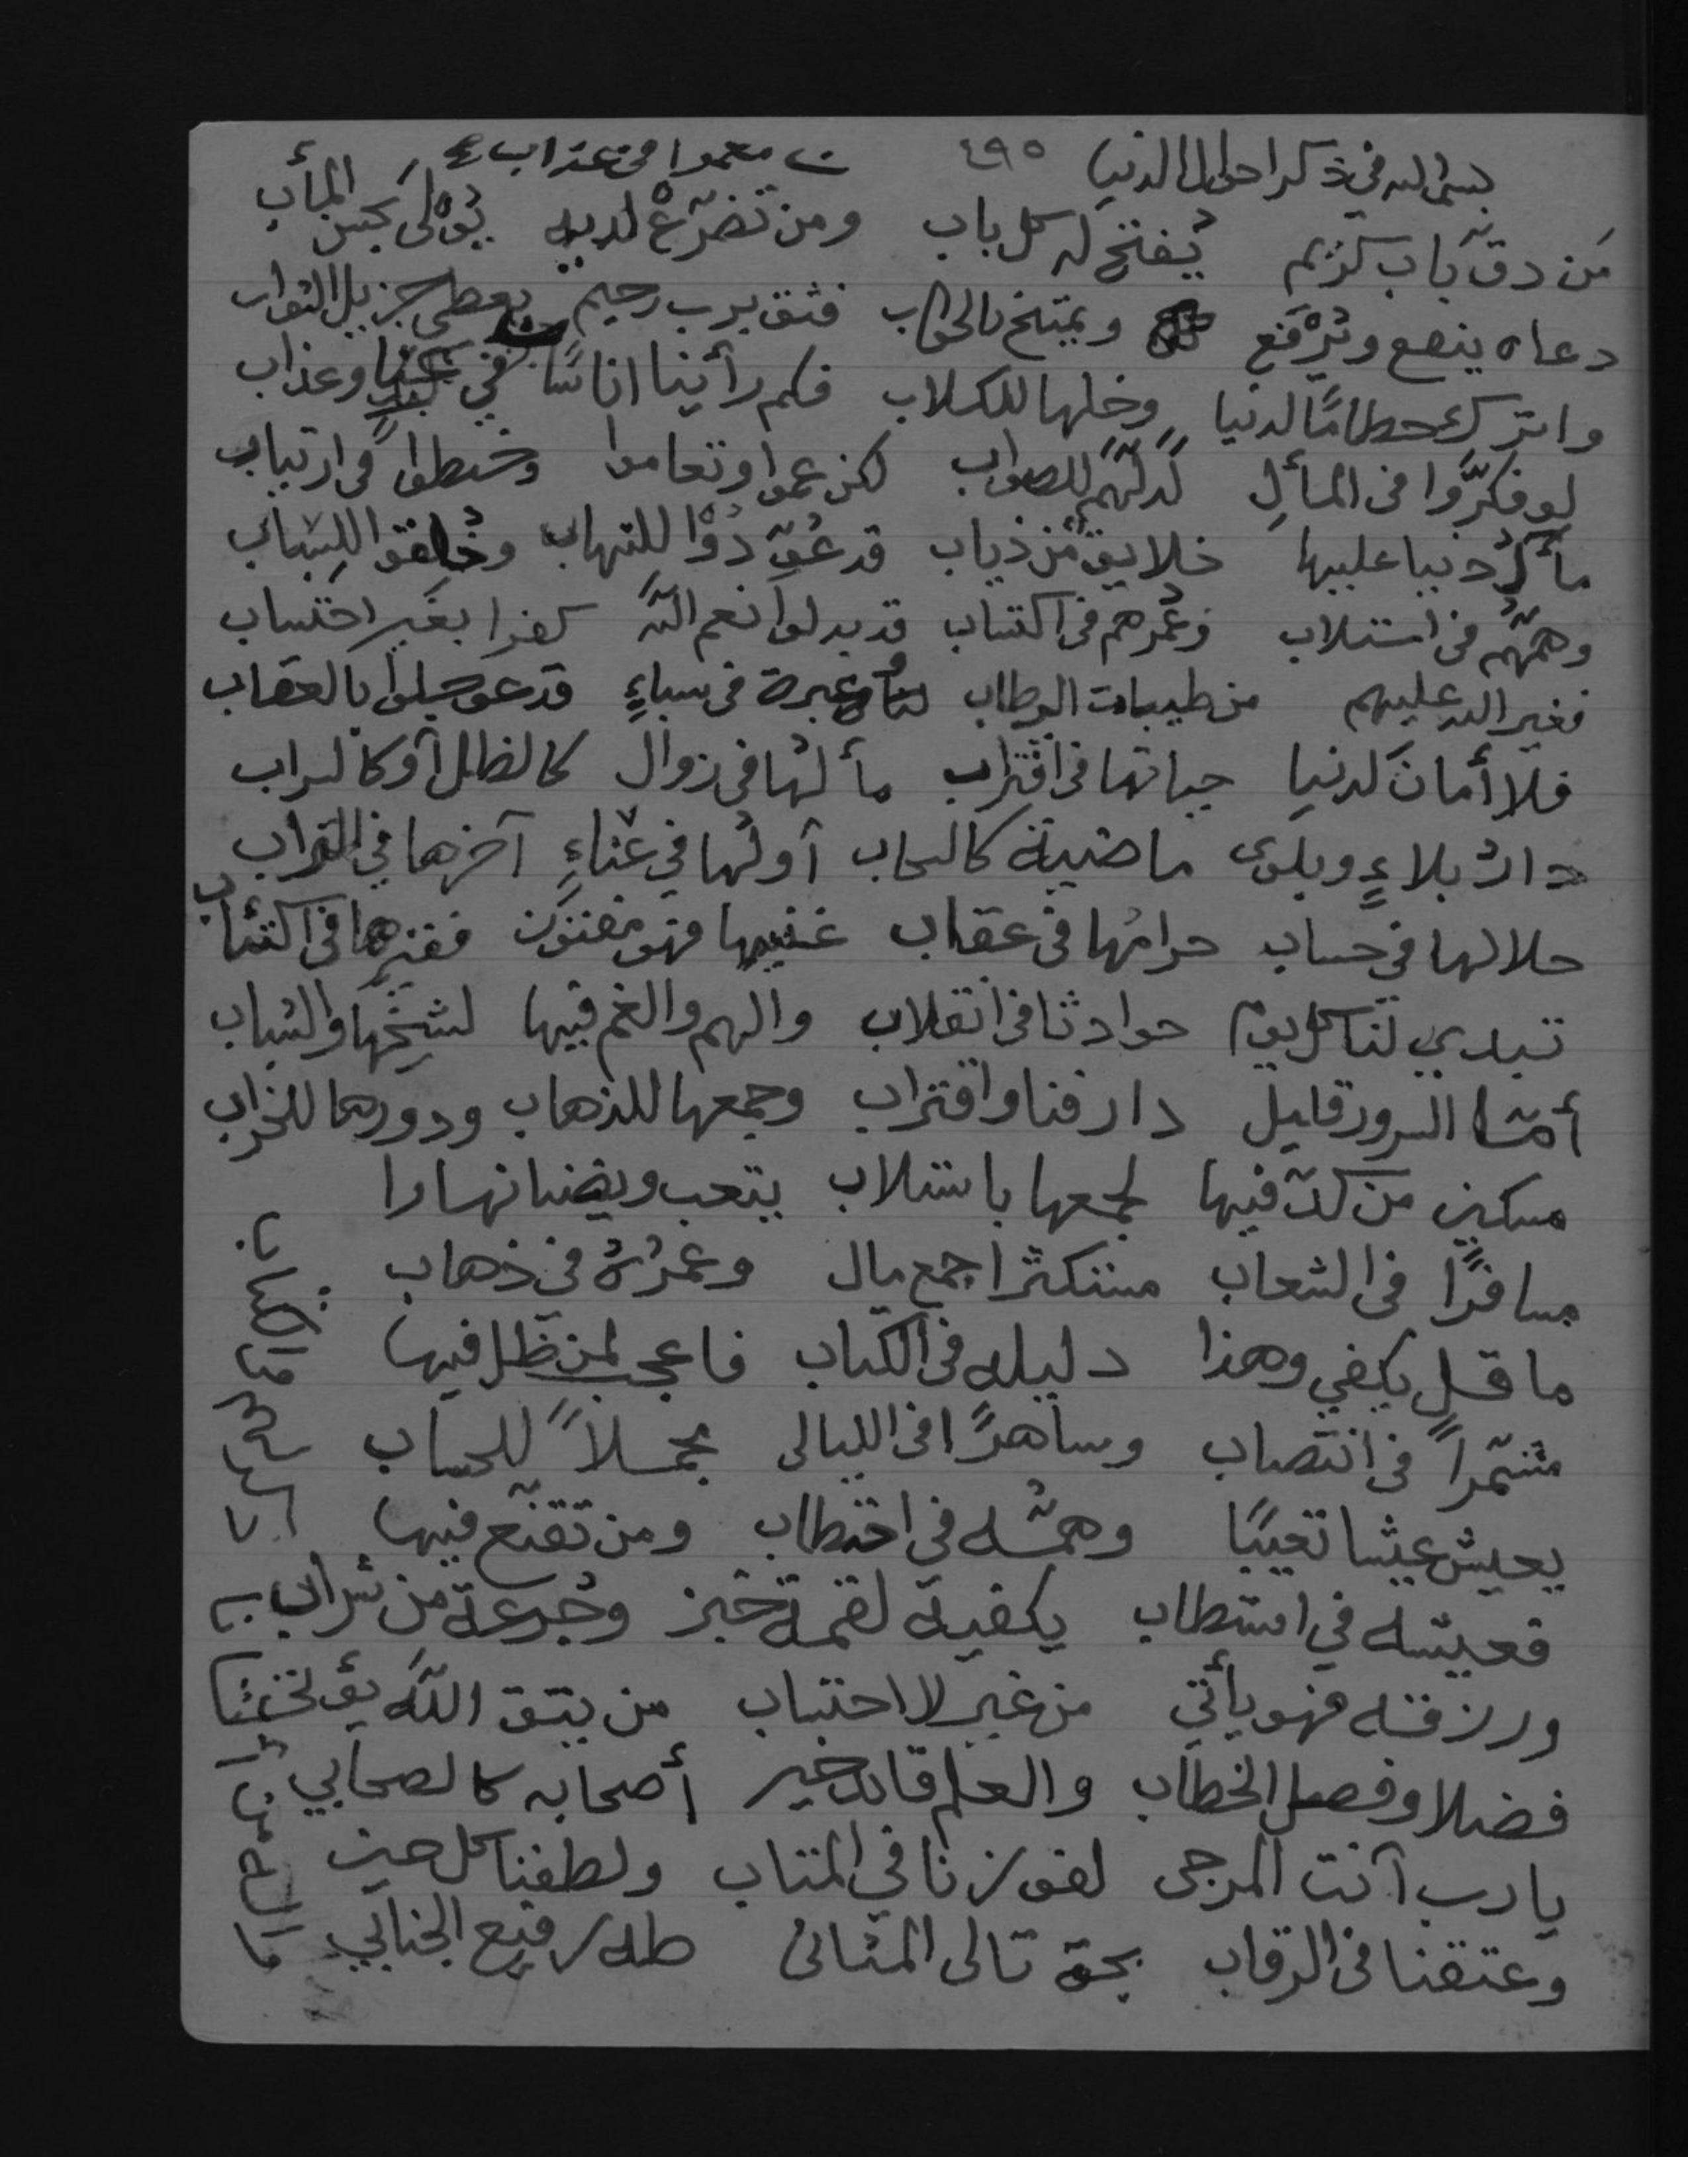 بسم الله في ذكر احوال الدنيا ٤٩٥ معموا في عذاب
مَن دقّ باب كريم يُفتح له كل باب ومن تضرّع لديه يُولى بحسن المأب
دعاه ينصع ويُرفع ويمتنح بالجواب فثق برب رحيم يعطي جزيل الثواب
واترك حطامًا لدنيا وخلها للكلاب فكم رأينا اناسًا في وعذاب
لو فكّروا في المأل لدلّهم للصواب لكن عموا وتعاموا وخبطوا في ارتياب
مأل دنيا عليها خلايق من ذياب قد عوّدوا للنهاب وخلقوا للسباب
وهمّهُم في استلاب وعُمرهم في اكتساب قد بدلوا نعم الله كفرا بغير احتساب
فغير الله عليهم من طيبات الرطاب عبرة في سباءٍ قد عوجلوا بالعقاب
فلا أمانَ لدنيا حياتها في اقتراب مألُها في زوال كالظل أو كالسراب
دارُ بلاءٍ وبلوى ماضية كالسحاب أولها في عناءٍ آخرها في التراب
حلالها في حساب حرامُها في عقاب غنيها فهو مفتون فقيرها في اكتئاب
تبدي لنا كل يوم حوادثا في انقلاب والهم والغم فيها لشيخها والشباب
أمّا السرور قليل دار فنا واقتراب وجمعها للذهاب ودورها للخراب
مسكين من كدّ فيها لجمعها باستلاب يتعب ويضنا نهارا
مسافرًا في الشعاب مستكثرا جمع مال وعمرُهُ في ذهاب
ما قل يكفي وهذا دليله في الكتاب فاعجب لمن ظل فيها
مشمّراً في انتصاب وساهرًا في الليالى مجملاً للحساب
يعيش عيشا تعيبًا وهمّه في اختطاب ومن تقنّع فيها
فعيشه في استطاب يكفيه لقمة خبز وجرعة من شراب
ورزقه فهو يأتي من غير لا احتساب من يتق الله يؤتى
فضلا وفصل الخطاب والعلم قائد خير أصحابه كالصحابي
يا رب أنت المرجى لفوزنا في المتاب ولطفنا كل حين
وعتقنا في الرقاب بحق تالى المثانى طه رفيع الجنابي